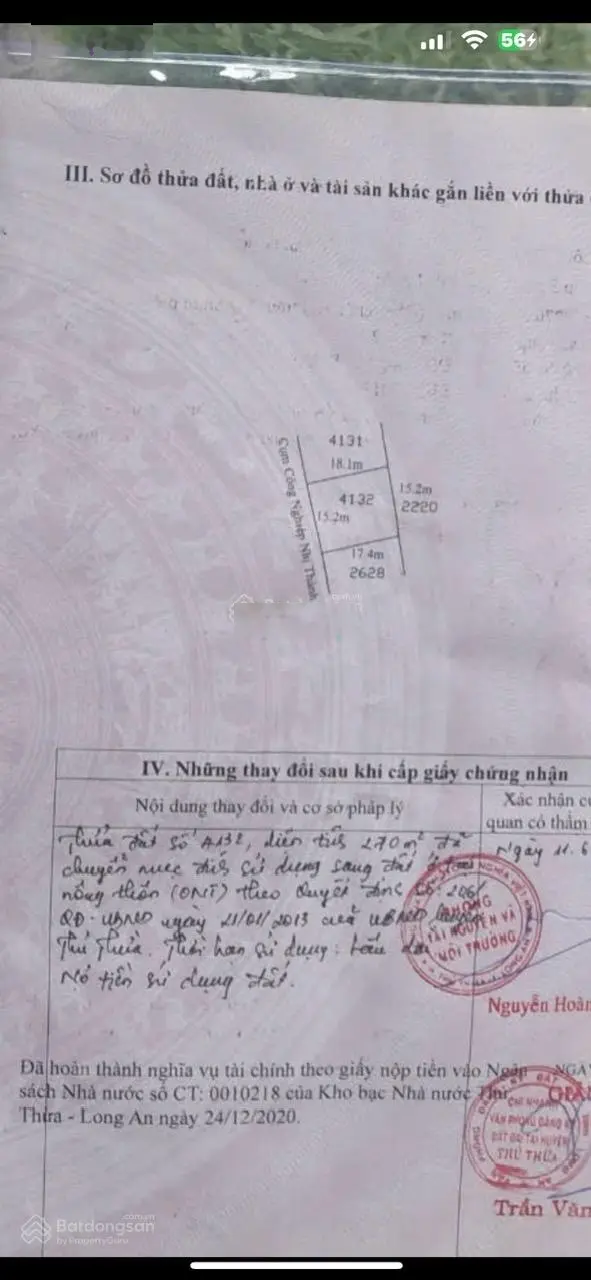 56
III. Sơ đồ thửa đất, nhà ở và tài sản khác gắn liền với thửa
4131
18.1m
Cụm Công Nghiệp Nhị Thành
4132
15.2m
15.2m
2220
17.4m
2628
IV. Những thay đổi sau khi cấp giấy chứng nhận
Nội dung thay đổi và cơ sở pháp lý
Xác nhận c
quan có thẩm
Thửa đất số 4132, diện tích 270m² đã
Ngày 11.6
chuyển mục đích sử dụng sang đất ở tại
nông thôn (ONT) theo Quyết định số: 206/
QĐ-UBND ngày 21/01/2013 của UBND huyện
Thủ Thừa. Thời hạn sử dụng: Lâu dài
Nợ tiền sử dụng đất.
PHÒNG
TÀI NGUYÊN VÀ
MÔI TRƯỜNG
Nguyễn Hoàn
Đã hoàn thành nghĩa vụ tài chính theo giấy nộp tiền vào Ngân
sách Nhà nước số CT: 0010218 của Kho bạc Nhà nước Thủ
Thừa - Long An ngày 24/12/2020.
NGÀ
GIÁ
CHI NHÁNH
VĂN PHÒNG ĐĂNG KÝ
ĐẤT ĐAI TẠI HUYỆN
THỦ THỪA
Trần Văn
Batdongsan
.com.vn
by PropertyGuru